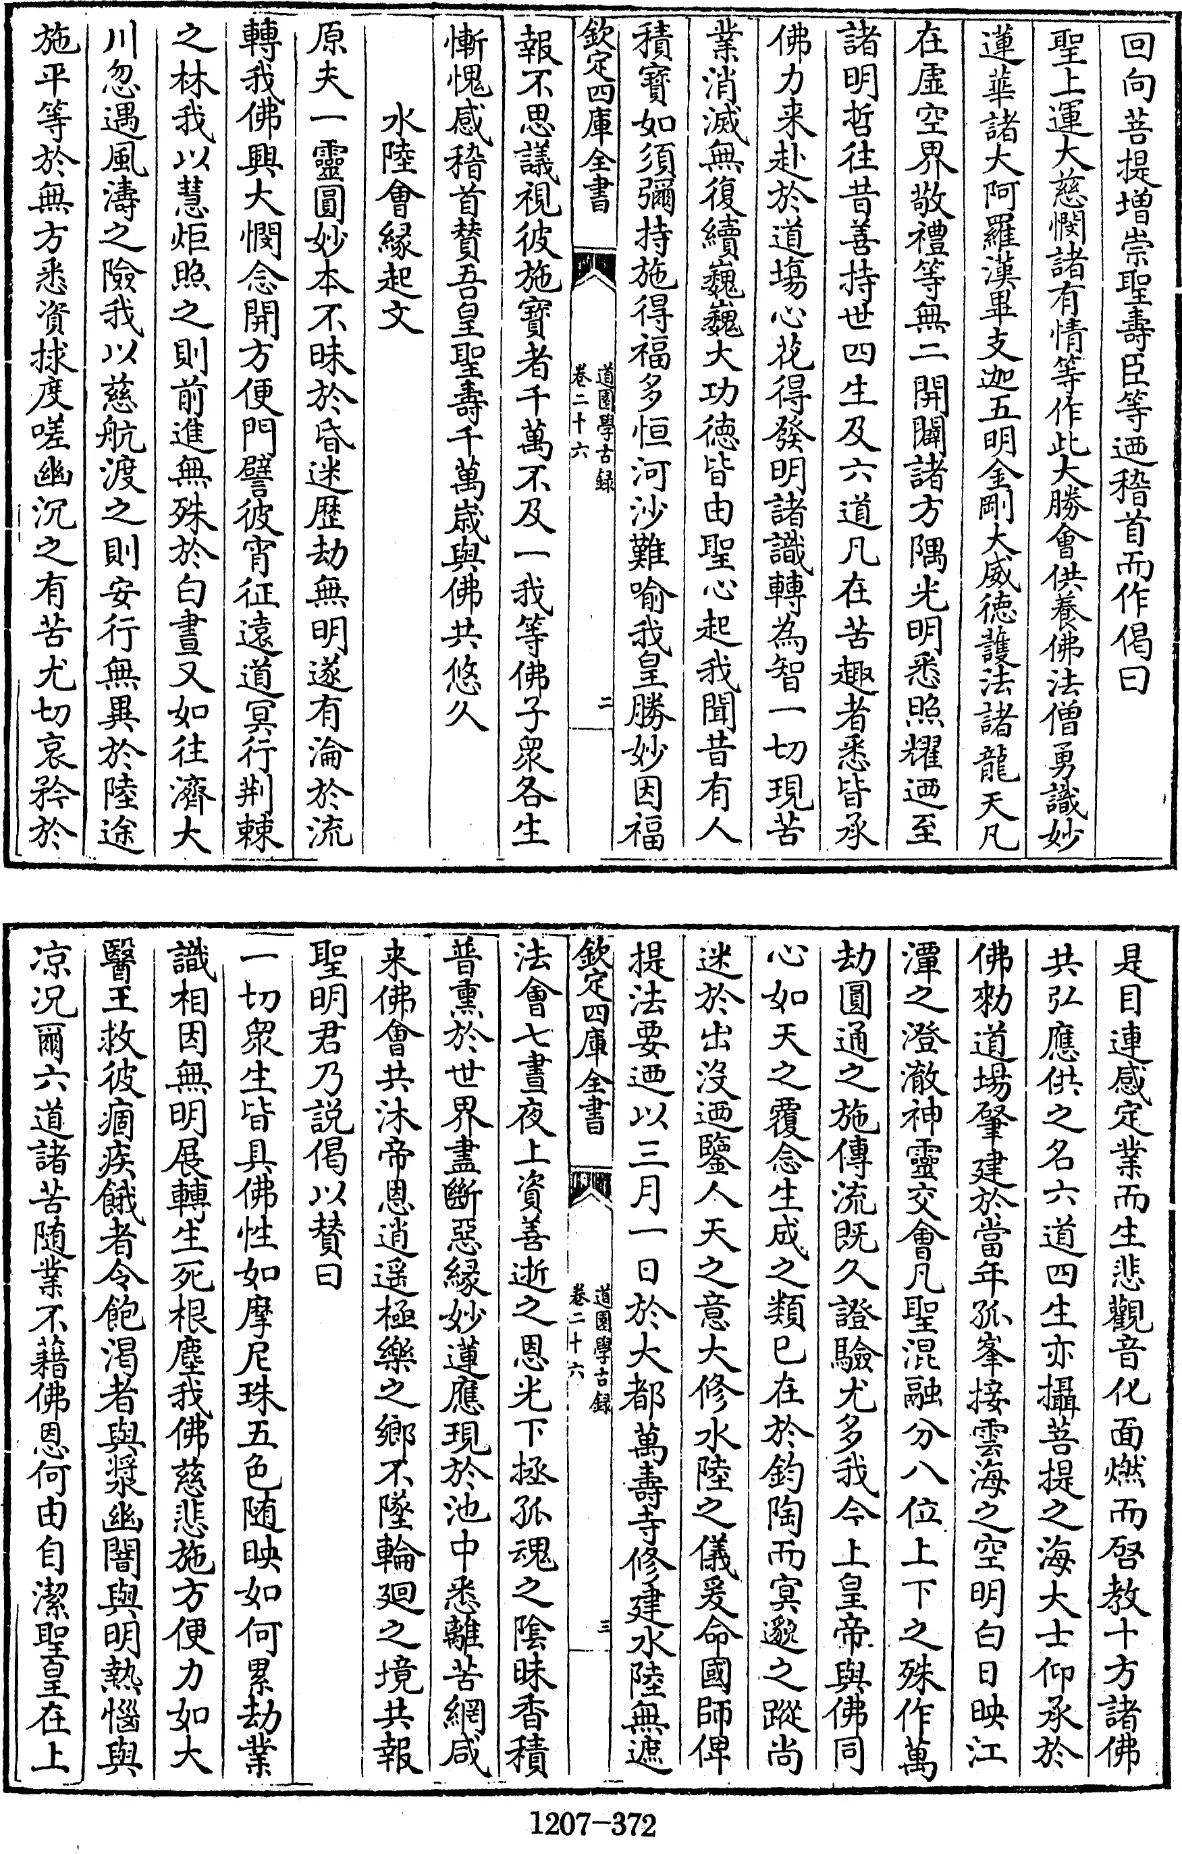 回向菩提增崇聖壽臣等迺稽首而作偈曰
聖上運大慈憫諸有情等作此大勝會供養佛法僧勇識妙
蓮華諸大阿羅漢畢支迦五明金剛大威德護法諸龍天凡
在虛空界敬禮等無二開闢諸方隅光明悉照耀迺至
諸明哲往昔善持世四生及六道凡在苦趣者悉皆承
佛力来赴於道場心花得發明諸識轉為智一切現苦
業消滅無復續巍巍大功德皆由聖心起我聞昔有人
積寶如須彌持施得福多恒河沙難喻我皇勝妙因福
欽定四庫全書
道園學古録
卷二十六
二
報不思議視彼施寶者千萬不及一我等佛子衆各生
慚愧感稽首賛吾皇聖壽千萬歳與佛共悠久
水陸會緣起文
原夫一靈圓妙本不昧於昏迷歴劫無明遂有淪於流
轉我佛興大憫念開方便門譬彼宵征遠道冥行荆棘
之林我以慧炬照之則前進無殊於白晝又如往濟大
川忽遇風濤之險我以慈航渡之則安行無異於陸途
施平等於無方悉資捄度嗟幽沉之有苦尤切哀矜於
是目連感定業而生悲觀音化面燃而啓教十方諸佛
共弘應供之名六道四生亦攝菩提之海大士仰承於
佛勑道場肇建於當年孤峯接雲海之空明白日映江
潭之澄澈神靈交會凡聖混融分八位上下之殊作萬
劫圓通之施傳流既久證驗尤多我今上皇帝與佛同
心如天之覆念生成之類已在於鈞陶而冥邈之蹤尚
迷於出沒迺鑒人天之意大修水陸之儀爰命國師俾
提法要迺以三月一日於大都萬壽寺修建水陸無遮
欽定四庫全書
道園學古録
卷二十六
三
法會七晝夜上資善逝之恩光下拯孤魂之陰昧香積
普熏於世界盡斷惡緣妙蓮應現於池中悉離苦網咸
来佛會共沐帝恩逍遥極樂之鄉不墜輪廻之境共報
聖明君乃説偈以賛曰
一切衆生皆具佛性如摩尼珠五色随映如何累劫業
識相因無明展轉生死根塵我佛慈悲施方便力如大
醫王救彼痼疾餓者令飽渴者與漿幽闇與明熱惱與
凉况爾六道諸苦随業不藉佛恩何由自潔聖皇在上
1207-372